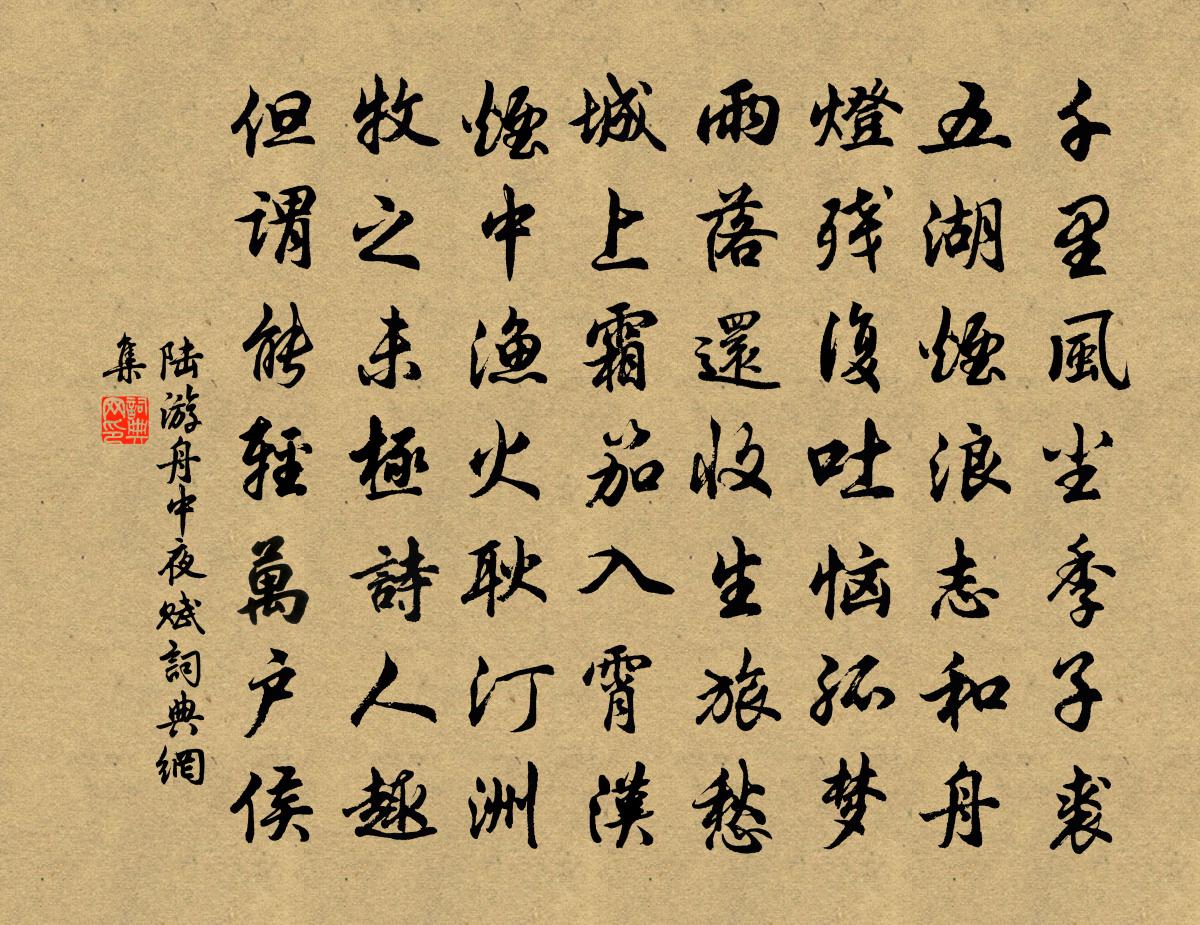 千里風尘季子裘
五湖煙浪志和舟
燈残復吐恼孤梦
雨落還收生旅愁
城上霜笳入霄漢
煙中漁火耿汀洲
牧之未極詩人趣
但謂能輕萬户侯
陆游舟中夜赋詞典網
集
詞典
网印